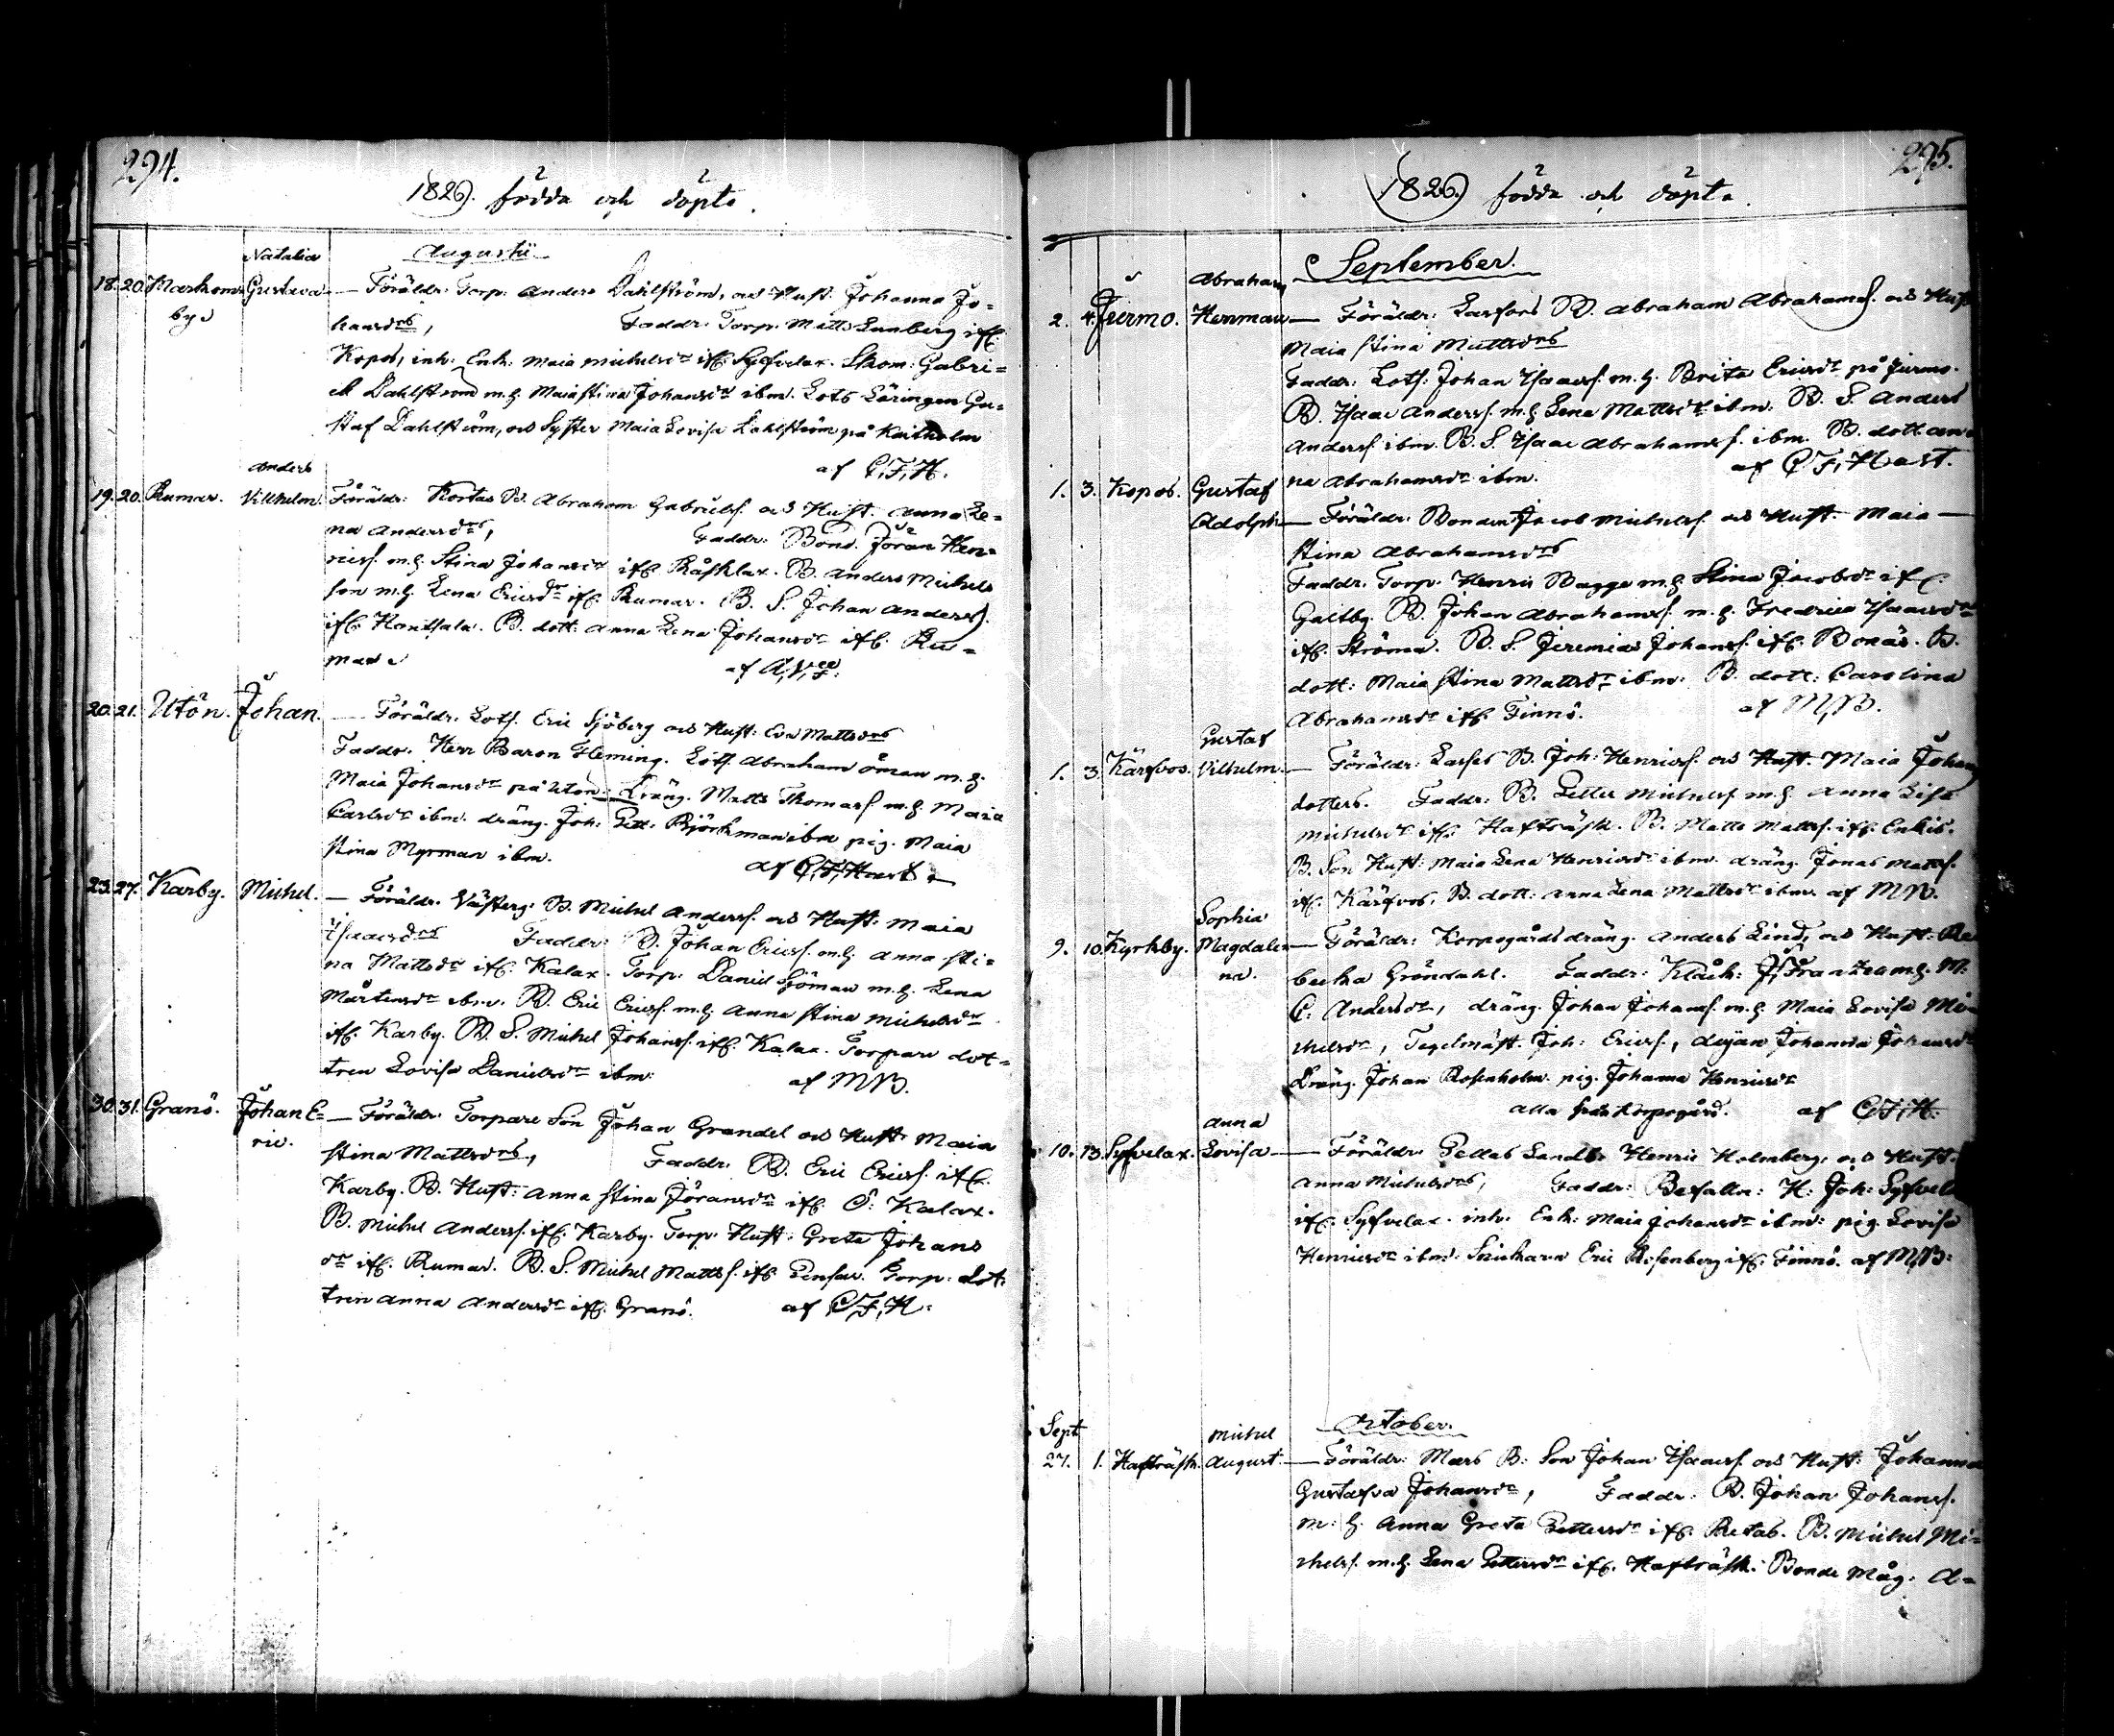 294.
1826. födda och döpte.
Augustii
Natalia
18. 20. Markomby Gustava — Föräldr: Torp. Anders Dahlström, och Hust. Johanna Jo-
hansdrs, Faddr. Torp. Matts Lunberg ifr.
Kopos, inh. Enk. Maia Michelsdr ifr. Syfvelax. Skom: Gabri-
el Dahlström m.h. Maia Stina Johansdr ibm. Lots Läringen Gu-
staf Dahlström, och Syster Maia Lovisa Dahlström på Kaitholm
af C.F.H.
Anders
19. 20. Rumar. Vilhelm. Föräldr: Kortas B. Abraham Gabrielss. och Hust. Anna Le-
na Andersdrs, Faddr: Bond. Jöran Hen-
ricss. m.h. Stina Johansdr ifr. Råsklax. B. Anders Michels
son m.h. Lena Ericsdr ifr. Rumar. B. S. Johan Anderss.
ifr. B. dott: Anna Lena Johansdr ifr. Ru-
mar.
20. 21. Utön. Johan. — Föräldr. Lots. Eric Sjöberg och Hust: Eva Mattsdrs
Faddr. Herr Baron Fleming. Lots. Abraham Öman m.h.
Maia Johansdr på Utön. Dräng. Matts Thomass. m.h. Maia
Carlsdr ibm. dräng. Joh: Pett: Björkman ibm pig. Maia
Stina Myrman ibm. af C.F.Hast.
23. 27. Karby. Michel. — Föräldr. Västerg. B. Michel Anderss. och Hust: Maia
Isaacsdrs Faddr: B. Johan Ericss. m.h. Anna Sti-
na Mattsdr ifr. Kalax. Torp: Daniel Sjöman m.h. Lena
Mårtensdr ibm. B. Eric Ericss. m.h. Anna Stina Michelsdr
ifr. Karby. B. S. Michel Johanss. ifr. Kalax. Torpare dot-
tren Lovisa Danielsdr ibm. af M.B.
30. 31. Granö. Johan E- — Föräldr: Torpare Son Johan Grandel och Hust. Maia
ric.
Stina Mattsdrs, Faddr. B. Eric Ericss. ifr.
Karby. B. Hust: Anna Stina Jöransdr ifr. Ö: Kalax.
B. Michel Anderss. ifr. Karby. Torp: Hust: Greta Johans
dr ifr. Rumar. B. S. Michel Mattss. ifr. Pensar. Torp: dot-
tren Anna Andersdr ifr. Granö. af C.F.H.
295.
1826. födda och döpte.
September.
Abraham
2. 4. Jurmo. Herrman — Föräldr: B. Abraham Abrahamss. och Hust
Maia Stina Mattsdrs
Faddr: Lots. Johan Isaacss. m.h. Brita Ericsdr på Jurmo.
B. Isaac Anderss. m.h. Lena Mattsdr ibm: B. S. Anders
Anderss. ibm. B. S. Isaac Abrahamss. ibm. B. dott. An-
na Abrahamsdr ibm. af C.F.Hast.
1. 3. Kopos. Gustaf
Adolph — Föräldr: Bonden Jacob Michelss. och Hust. Maia
Stina Abrahamsdrs
Faddr. Torp. Henric Bagge m.h. Stina Jacobsdr ifr.
Galtby. B. Johan Abrahamss. m.h. Fredrica Isaacsdr
ifr. Ströma. B. S. Jeremias Johanss. ifr. Bonäs. B.
dott: Maia Stina Mattsdr ibm: B. dott: Carolina
Abrahamsdr ifr. Finnö. af M.B.
Gustaf
1. 3. Kärfvos. Vilhelm. — Föräldr: Lasses B. Joh: Henricss. och Hust. Maia Johans
dotters. Faddr: B. Petter Michelss. m.h. Anna Lisa
Michelsdr ifr. Hafträsk. B. Matts Mattss. ifr. Enkis.
B. Son Hust: Maia Lena Henricsdr ibm. dräng. Jonas Mattss.
ifr. Kärfvos, B. dott: Anna Lena Mattsdr ibm. af M.B.
Sophia
9. 10. Kyrkby. Magdale- — Föräldr: Korpogårds dräng. Anders Lind, och Hust: Re
na. becka Gröndahl. Faddr: Klåck: m.h. M:
C. Andersdr, dräng. Johan Johanss. m.h. Maia Lovisa Mi-
chelsdr, Tegelmäst. Joh: Ericss., dejan Johanna Johansdr
Dräng. Johan Rosenholm. pig. Johanna Henricsdr
alla från Korpogård. af C.F.H.
Anna
10. 13. Syfvelax. Lovisa — Föräldr: Pellas Henric Holmberg, och Hust.
Anna Michelsdrs, Faddr: Befalln: H. Joh: Syfvel
ifr. Syfvelax. inh. Enk: Maia Johansdr ibm: pig. Lovisa
Henricsdr ibm: Snickaren Eric Rosenberg ifr. Finnö. af M.B.
October.
Sept Michel
27. 1. Hafträsk. August. — Föräldr: Mars B: Son Johan Isaacss. och Hust: Johanna
Gustafva Johansdr, Faddr: B. Johan Johanss.
m: h. Anna Greta Pettersdr ifr. Retas. B. Michel Mi-
chelss. m.h. Lena Pettersdr ifr. Hafträsk. Bonde Måg. A-